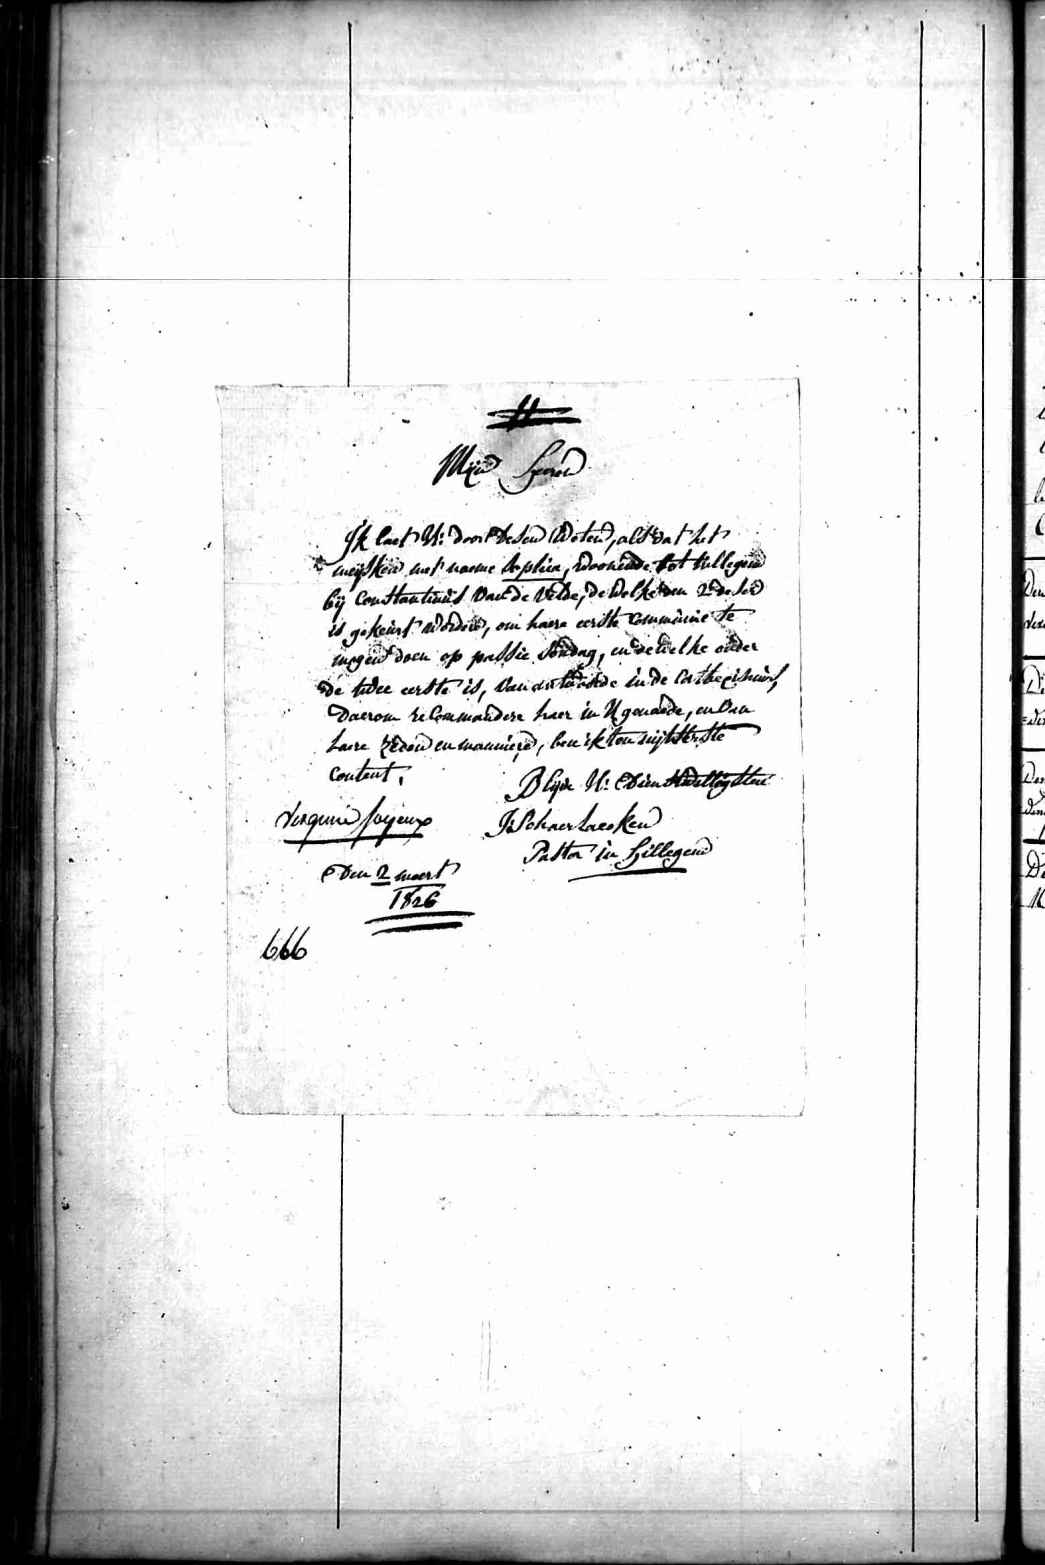 Mijn Heeren
Ik laet U: door desen Weten, als dat het
meijsken met naeme Sophia, Woonende tot hillegem
bij Constantinus Van de Velde, de Welke den 2 deser
is gekeurt Worden, om haere eerste Communie te
mogen doen op passie Sondag, en de welke onder
de twee eerste is, Van in de Cathechismus,
Daerom recommandere haer in U genaede, en Van
haere Zeden en manniere, ben ik ten uijtterste
Content,
Blijve U: Dien
Virginie Joijeux
J: Schaerlaecken
Pastor in Hillegem
Den 2 maert
1826
666